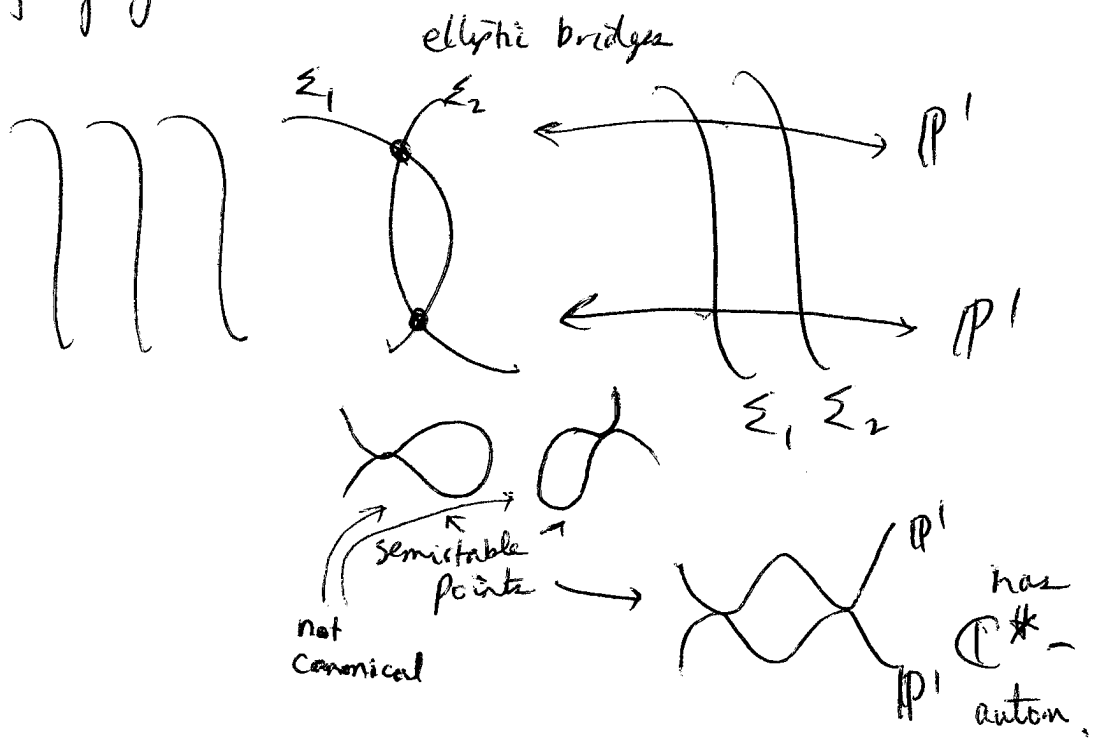 elliptic bridges
Σ₁ Σ₂
ℙ¹
ℙ¹
Σ₁ Σ₂
semistable
points
not
canonical
ℙ¹
ℙ¹
has
ℂ* -
autom.